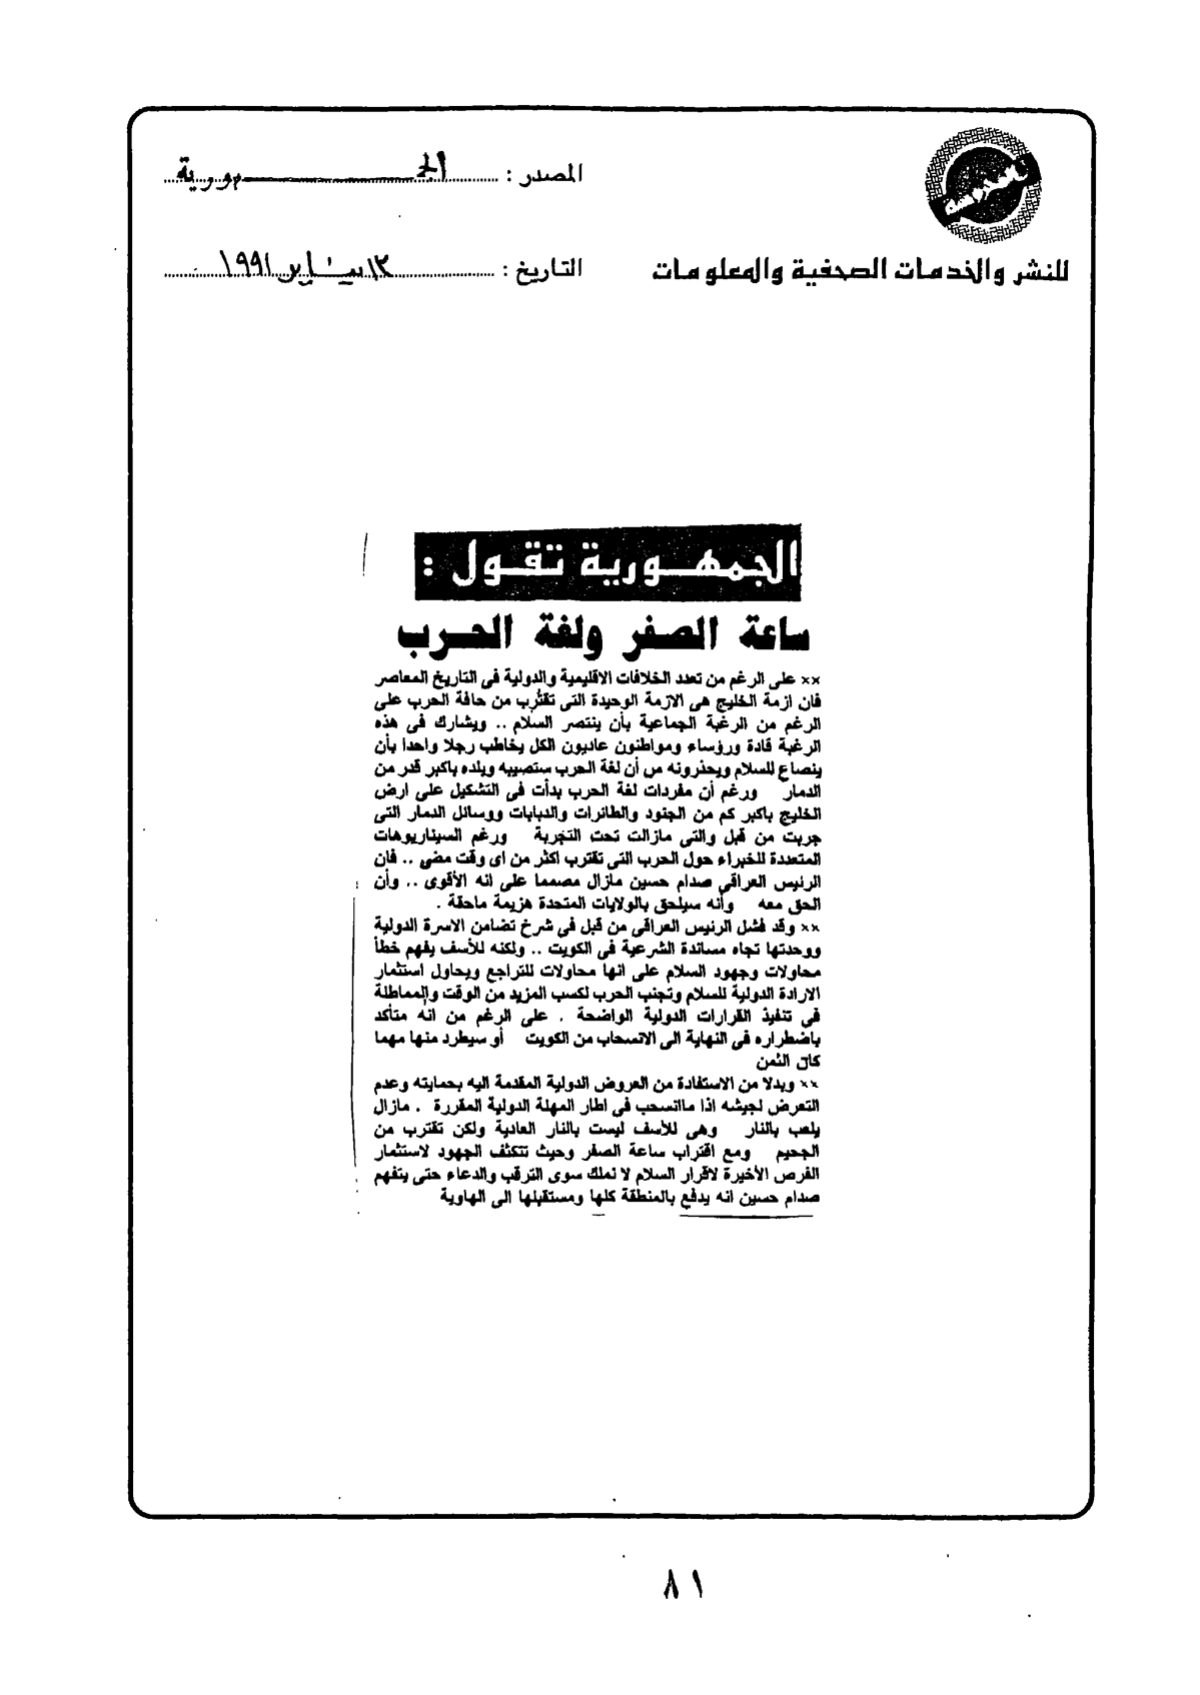 المصدر : الجمهورية
للنشر والخدمات الصحفية والمعلومات
التاريخ : ١٣ يناير ١٩٩١
الجمهورية تقول :
ساعة الصفر ولغة الحرب
×× على الرغم من تعدد الخلافات الاقليمية والدولية فى التاريخ المعاصر
فان ازمة الخليج هى الازمة الوحيدة التى تقترب من حافة الحرب على
الرغم من الرغبة الجماعية بأن ينتصر السلام .. ويشارك فى هذه
الرغبة قادة ورؤساء ومواطنون عاديون الكل يخاطب رجلا واحدا بأن
ينصاع للسلام ويحذرونه من أن لغة الحرب ستصيبه وبلده باكبر قدر من
الدمار ورغم أن مفردات لغة الحرب بدأت فى التشكيل على ارض
الخليج باكبر كم من الجنود والطائرات والدبابات ووسائل الدمار التى
جربت من قبل والتى مازالت تحت التجربة ورغم السيناريوهات
المتعددة للخبراء حول الحرب التى تقترب اكثر من اى وقت مضى .. فان
الرئيس العراقى صدام حسين مازال مصمما على انه الأقوى .. وأن
الحق معه وأنه سيلحق بالولايات المتحدة هزيمة ماحقة .
×× وقد فشل الرئيس العراقى من قبل فى شرخ تضامن الاسرة الدولية
ووحدتها تجاه مساندة الشرعية فى الكويت .. ولكنه للأسف يفهم خطأ
محاولات وجهود السلام على انها محاولات للتراجع ويحاول استثمار
الارادة الدولية للسلام وتجنب الحرب لكسب المزيد من الوقت والمماطلة
فى تنفيذ القرارات الدولية الواضحة . على الرغم من انه متأكد
باضطراره فى النهاية الى الانسحاب من الكويت أو سيطرد منها مهما
كان الثمن
×× وبدلا من الاستفادة من العروض الدولية المقدمة اليه بحمايته وعدم
التعرض لجيشه اذا ماانسحب فى اطار المهلة الدولية المقررة . مازال
يلعب بالنار وهى للأسف ليست بالنار العادية ولكن تقترب من
الجحيم ومع اقتراب ساعة الصفر وحيث تتكثف الجهود لاستثمار
الفرص الأخيرة لاقرار السلام لا نملك سوى الترقب والدعاء حتى يتفهم
صدام حسين انه يدفع بالمنطقة كلها ومستقبلها الى الهاوية
٨١